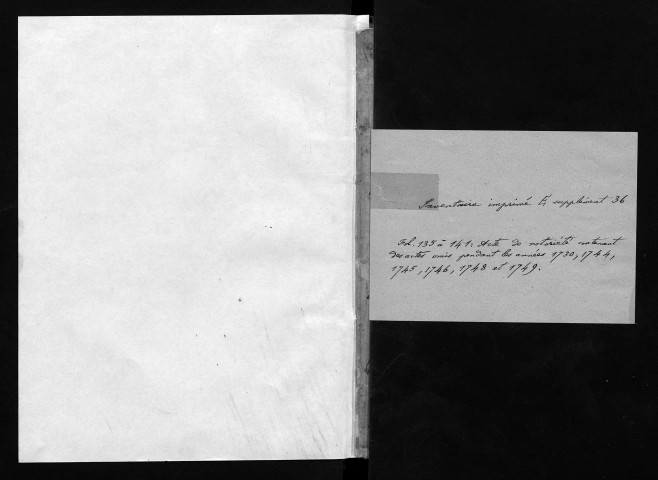 Inventaire imprimé E, supplément 36
Fol. 135 à 141: Acte de notoriété contenant
des actes omis pendant les années 1730, 1744,
1745, 1746, 1748 et 1749.